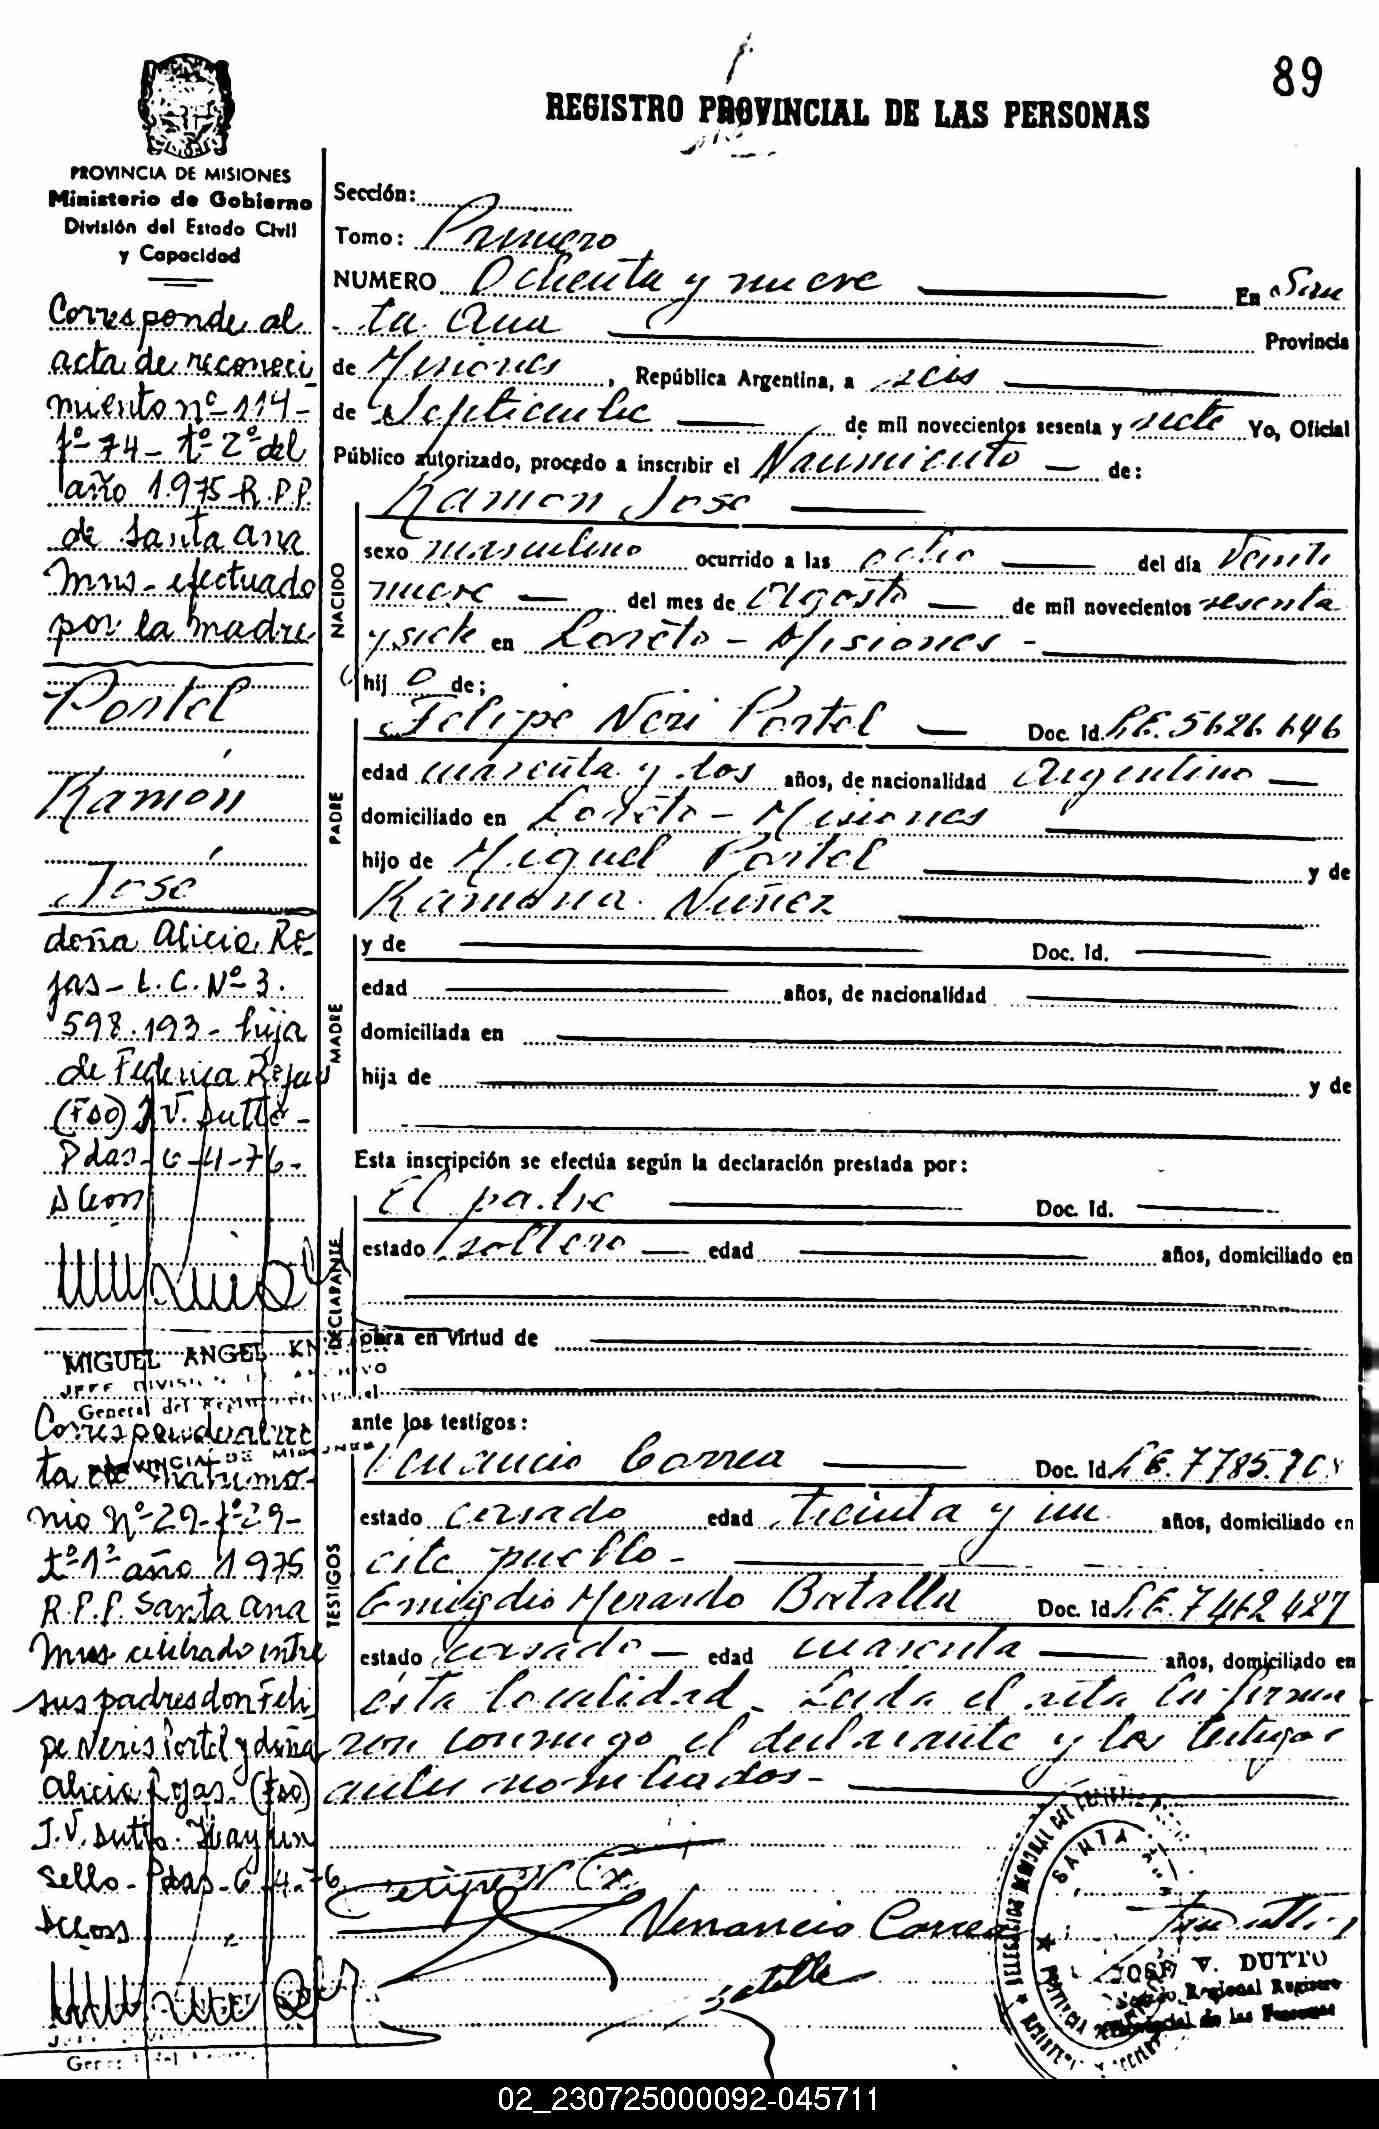 89
REGISTRO PROVINCIAL DE LAS PERSONAS
PROVINCIA DE MISIONES
Ministerio de Gobierno
División del Estado Civil
y Capacidad
Corresponde al
acta de reconoci
miento nº 114-
fº 74 - tº 2º del
año 1.975-R.P.P.
de Santa Ana
Mns - efectuado
por la madre
Portel
Ramón
José
doña Alicia Ro-
jas - L.C. Nº 3.
598.193 - hija
de Federica Rojas
(Fdo) J.V. Dutto -
Pdas - 6-4-76-
MIGUEL ANGEL
JEFE DIVISION
General del
PROVINCIAL DE MISIONES
Corresponde al ac
ta de matrimo-
nio Nº 29-fº 29-
tº 1º año 1975
R.P.P. Santa Ana
Mns celebrado entre
sus padres don Feli
pe Neris Portel y doña
Alicia Rojas. (Fdo)
J.V. Dutto. Hay un
Sello - Pdas - 6-4-76
Sección:
Tomo: Primero
NUMERO Ochenta y nueve En San
ta Ana Provincia
de Misiones, República Argentina, a seis
de Septiembre de mil novecientos sesenta y siete Yo, Oficial
Público autorizado, procedo a inscribir el Nacimiento de:
NACIDO
Ramon Jose
sexo masculino ocurrido a las ocho del día Veinti
nueve del mes de Agosto de mil novecientos sesenta
y siete en Loreto - Misiones -
hij o de;
PADRE
Felipe Neri Portel Doc. Id. L.E. 5626.646
edad cuarenta y dos años, de nacionalidad Argentino
domiciliado en Loreto - Misiones
hijo de Miguel Portel y de
Ramona Nuñez
MADRE
y de Doc. Id.
edad años, de nacionalidad
domiciliada en
hija de y de
Esta inscripción se efectúa según la declaración prestada por:
DECLARANTE
El padre Doc. Id.
estado soltero edad años, domiciliado en
obra en virtud de
ante los testigos:
TESTIGOS
Venancio Correa Doc. Id. L.E. 7785.70
estado casado edad treinta y un años, domiciliado en
este pueblo -
Emigdio Merardo Batalla Doc. Id. L.E. 7462427
estado casado edad cuarenta años, domiciliado en
ésta localidad - Leida el acta la firma
ron conmigo el declarante y los testigos
antes nombrados -
Venancio Correa
Batalla
SANTA
JOSE V. DUTTO
Regional Registro
Provincial de las Personas
02_230725000092-045711